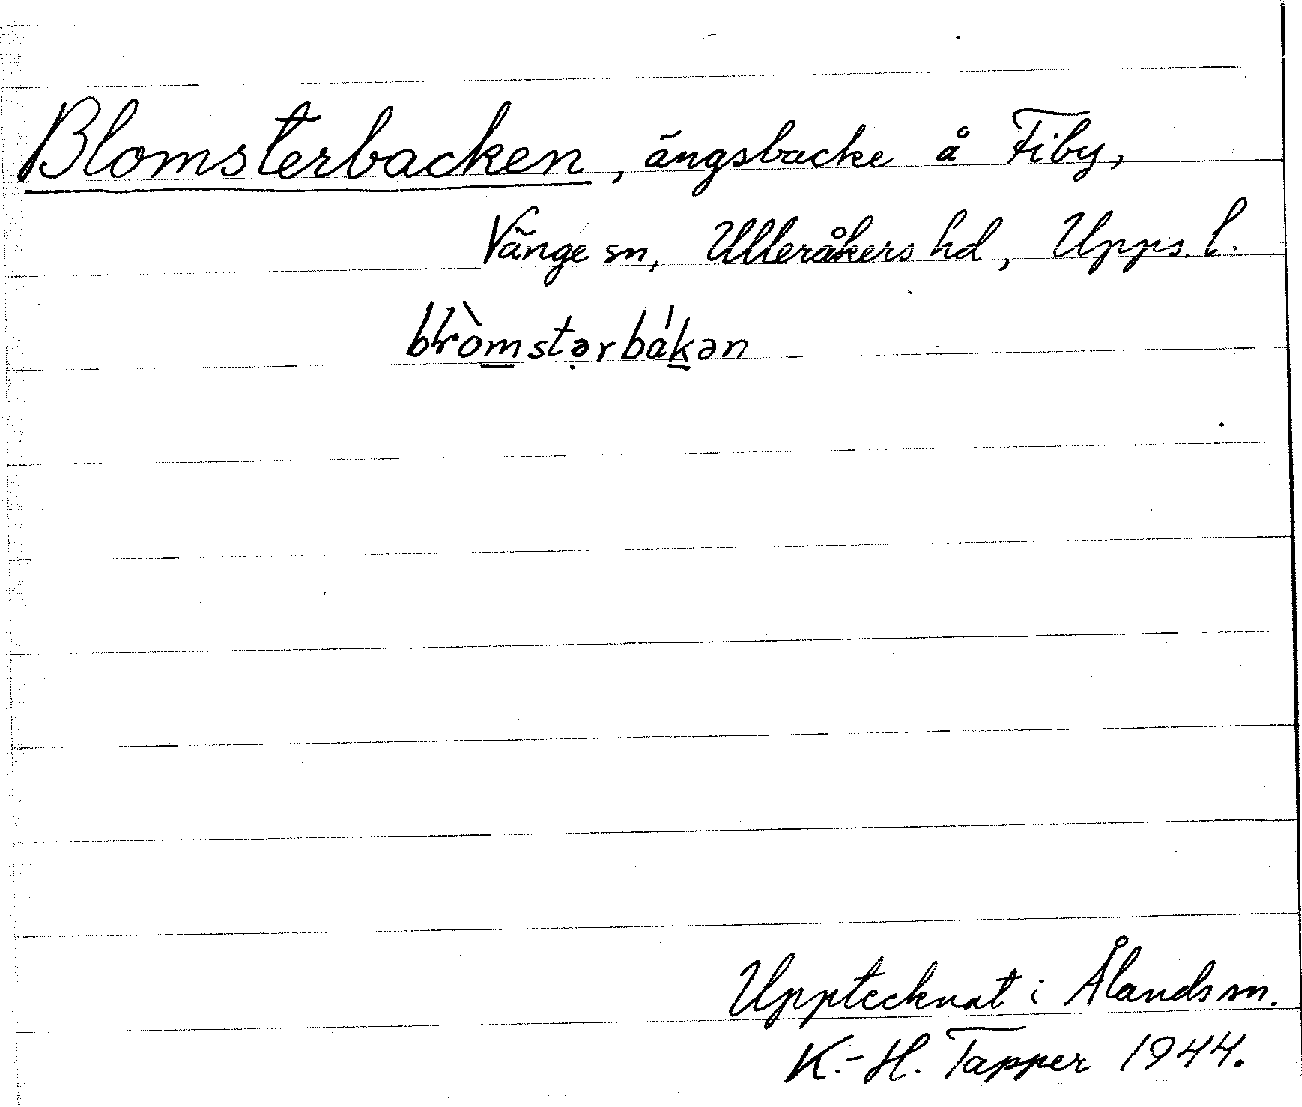 Blomsterbacken, ängsbacke å Fiby,
Vänge sn, Ulleråkers hd, Upps. l.
blòmstərbákən
Upptecknat i Ålands sn.
K.-H. Tapper 1944.